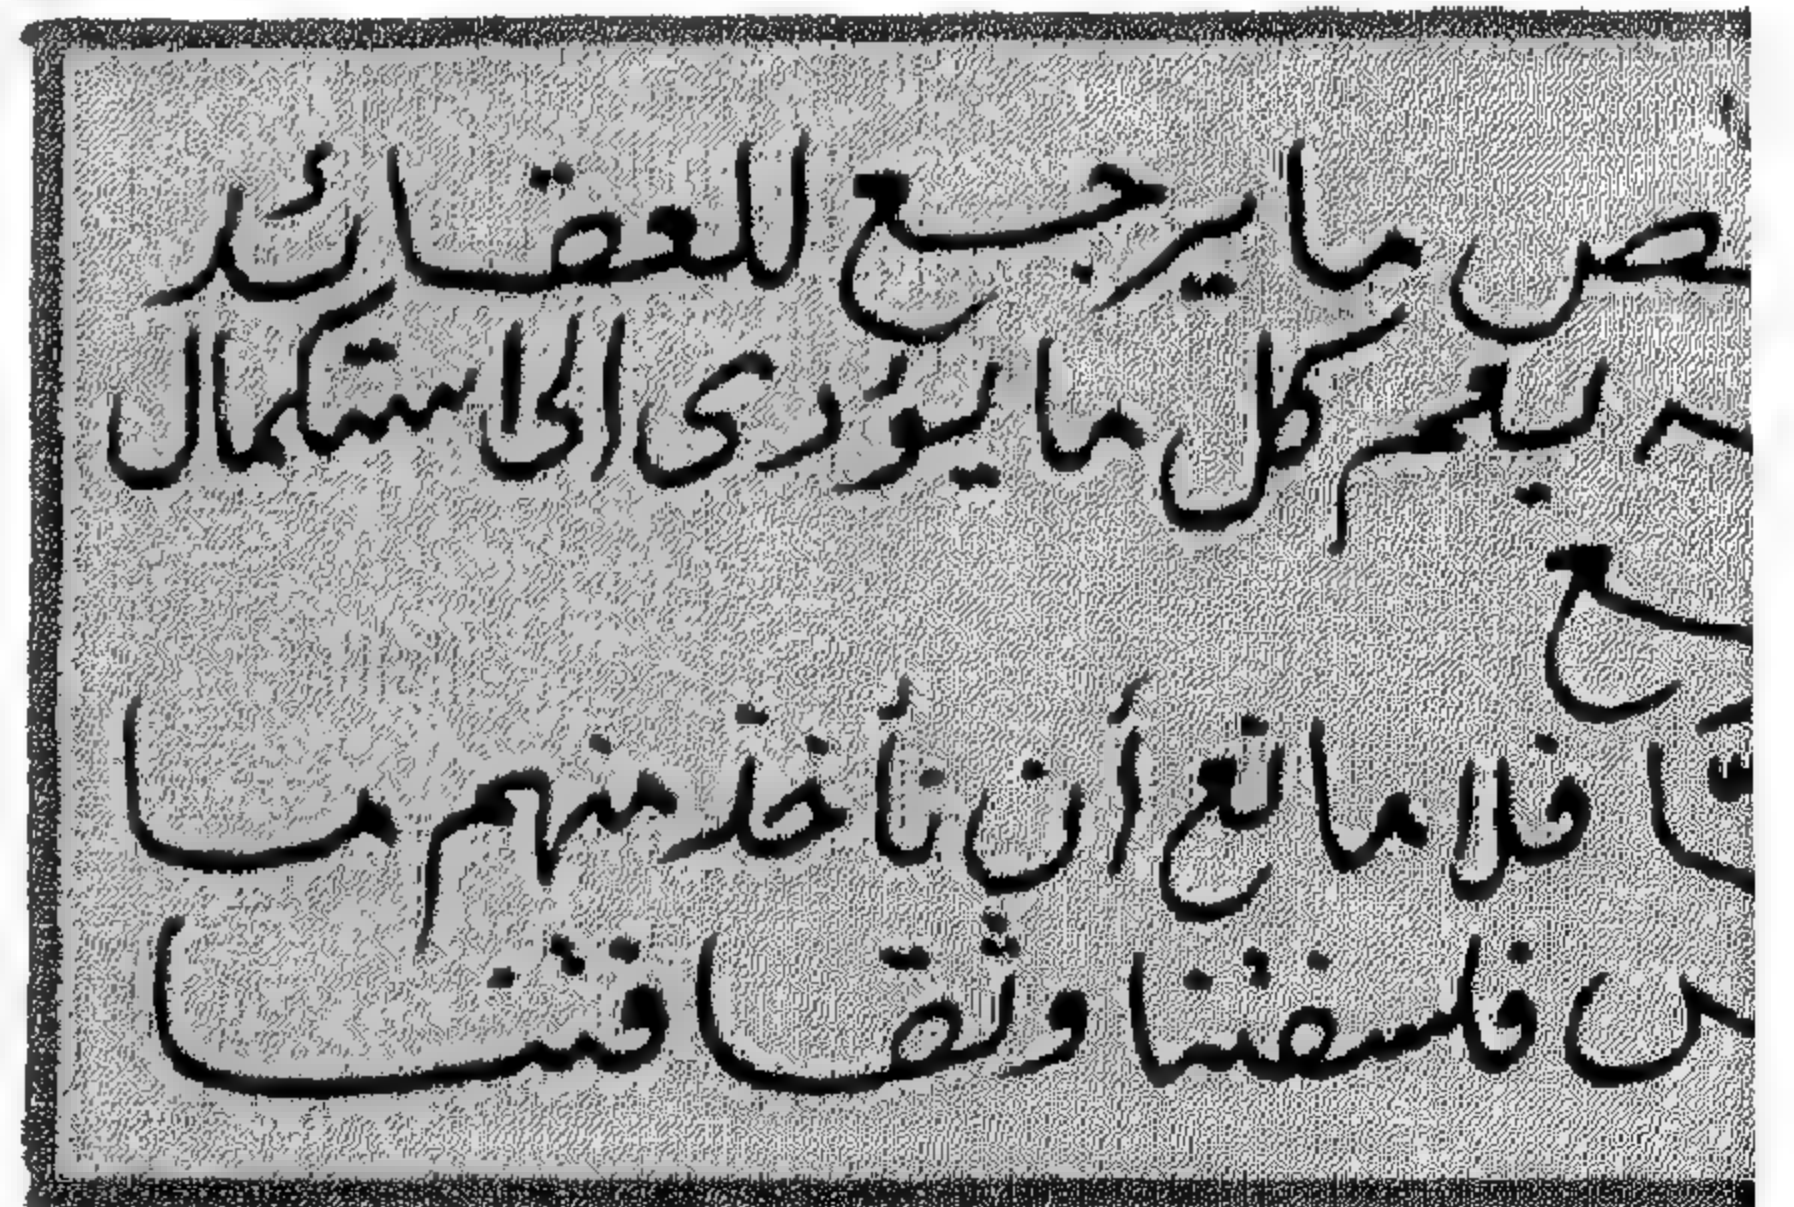 ما يرجع للعقائد
يعم كل ما يؤدى الى استكمال
فلا مانع أن نأخذ منهم ما
فلسفتنا وثقافتنا